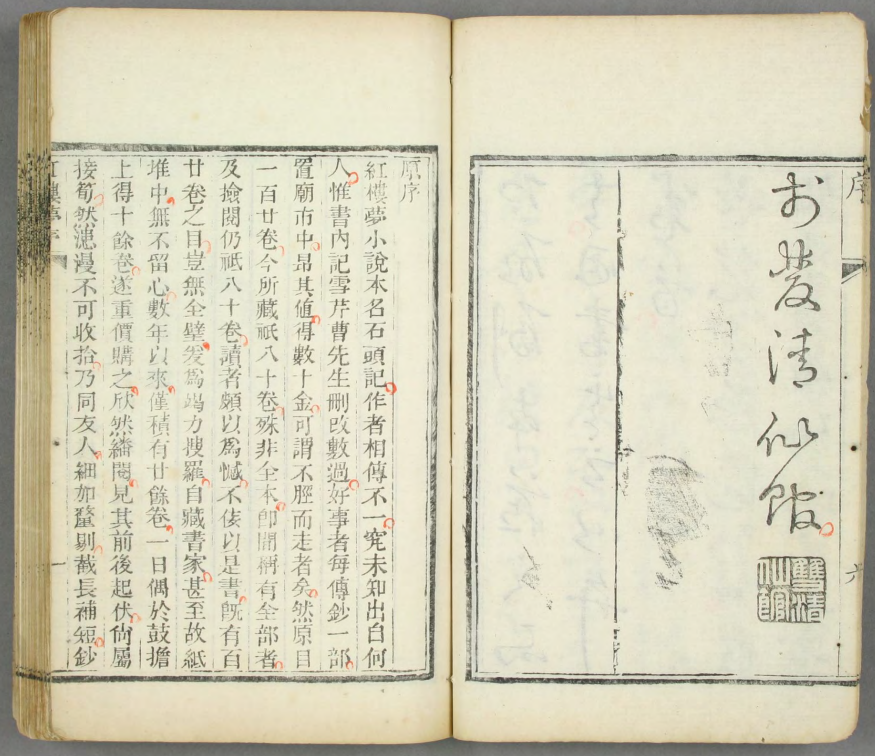 序
於雙清仙館
雙清仙館
六
原序
紅樓夢小說本名石頭記作者相傳不一究未知出自何
人惟書內記雪芹曹先生刪改數過好事者每傳鈔一部
置廟市中昂其值得數十金可謂不脛而走者矣然原目
一百廿卷今所藏祗八十卷殊非全本即間稱有全部者
及撿閱仍祗八十卷讀者頗以爲憾不佞以是書旣有百
廿卷之目豈無全璧爰爲竭力搜羅自藏書家甚至故紙
堆中無不留心數年以來僅積有廿餘卷一日偶於鼓擔
上得十餘卷遂重價購之欣然繙閱見其前後起伏尙屬
接筍然漶漫不可收拾乃同友人細加釐剔截長補短鈔
紅樓夢序
一